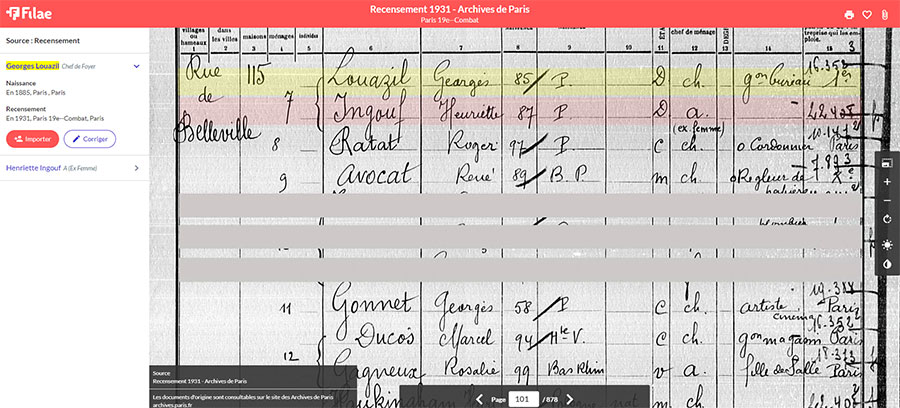 Filae
Recensement 1931 - Archives de Paris
Paris 19e--Combat
Source : Recensement
Georges Louazil Chef de Foyer
Naissance
En 1885, Paris , Paris
Recensement
En 1931, Paris 19e--Combat, Paris
Importer
Corriger
Henriette Ingouf A (Ex Femme)
villages ou hameaux
dans les villes
maisons
ménages
individus
chef de ménage
treprise qui les emploie.
1 2 3 4 5 6 7 8 9 10 11 12 13 14 15
3
16.353
Rue 115 Louazil Georges 85 P. D ch. gon bureau
de 7 Ingouf Henriette 87 P. D a. 22.408
(ex. femme)
Belleville 8 Ratat Roger 97 P. c ch. o Cordonnier Paris
9 Avocat René 89 B. P m ch. o Regleur de
11 Gonnet Georges 58 P c ch. artiste Paris
cinema 16.352
Ducos Marcel 94 Hte V. c ch. gon magasin Paris
12
Gagneux Rosalie 99 Bas Rhin v a. fille de salle Paris
Source
Recensement 1931 - Archives de Paris
Les documents d'origine sont consultables sur le site des Archives de Paris
archives.paris.fr
Page 101 / 878